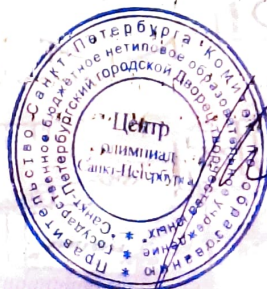 Правительство Санкт-Петербурга * Комитет по образованию *
Государственное бюджетное нетиповое образовательное учреждение *
"Санкт-Петербургский городской Дворец творчества юных" *
Центр
олимпиад
Санкт-Петербурга